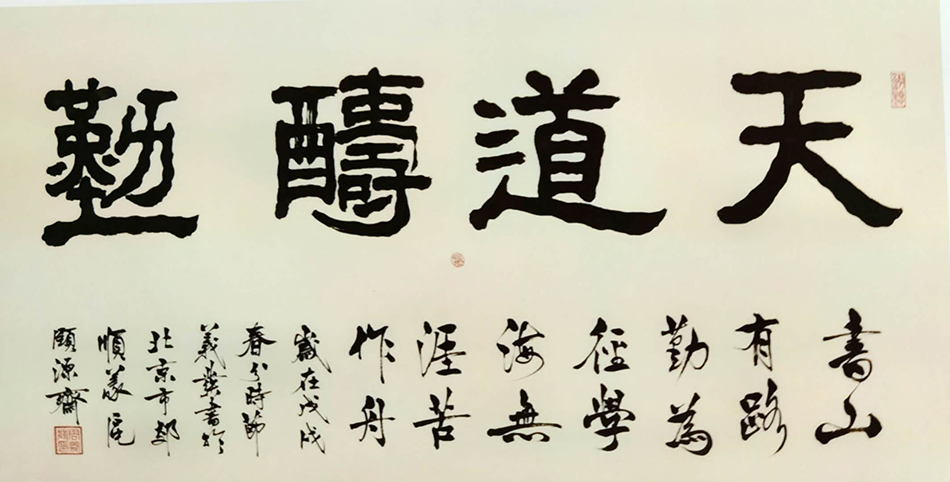 天道醻勤
書山
有路
勤為
徑學
海無
涯苦
作舟
歲在戊戌
春分時節
義書於
北京市郊
順義區
頤源齋